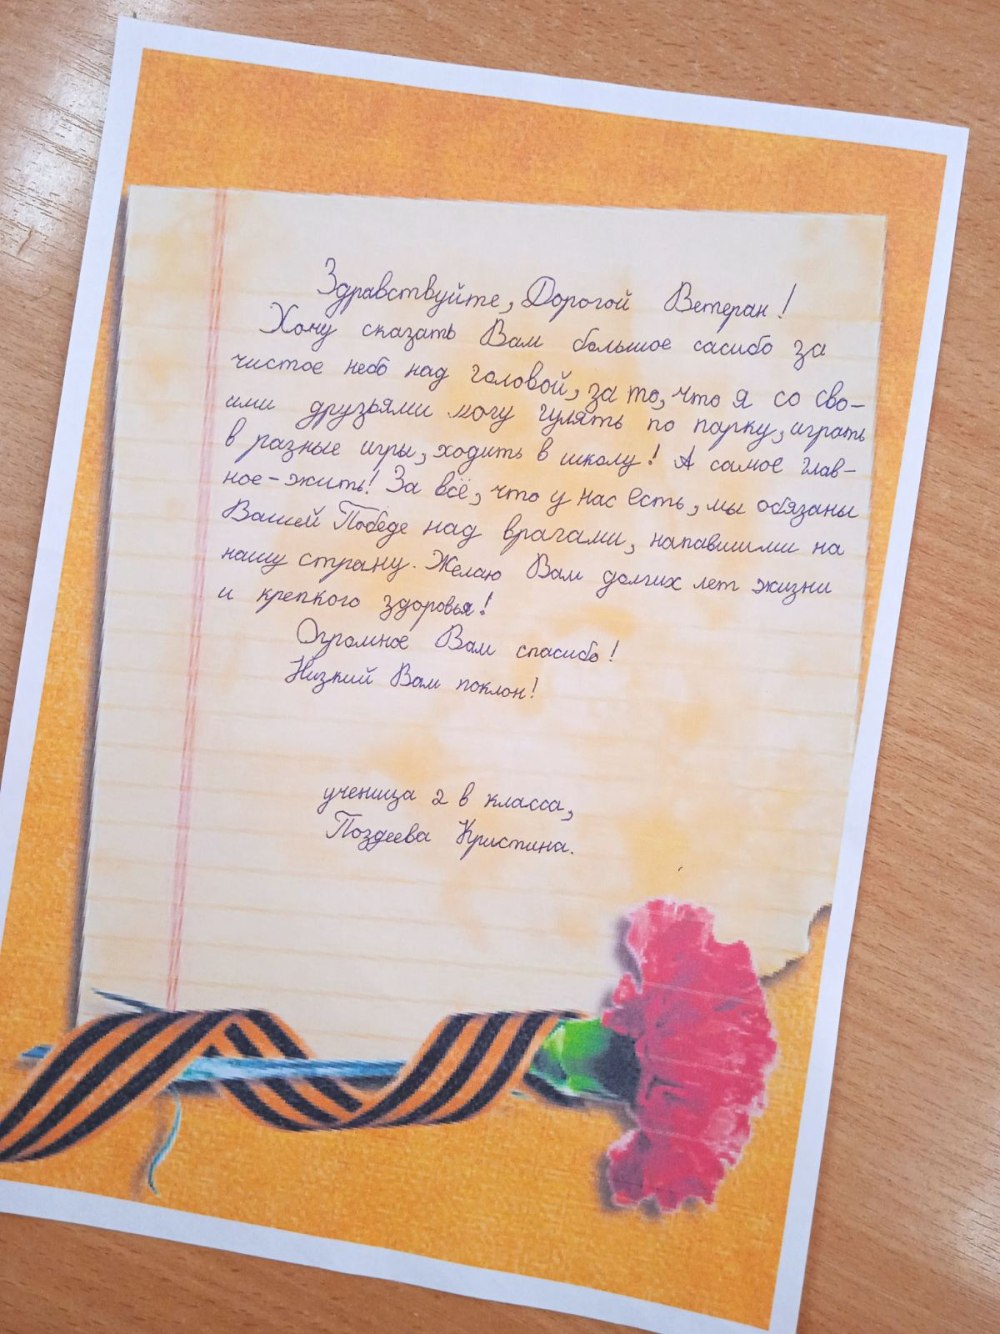 Здравствуйте, Дорогой Ветеран!
Хочу сказать Вам большое сасибо за
чистое небо над головой, за то, что я со сво-
ими друзьями могу гулять по парку, играть
в разные игры, ходить в школу! А самое глав-
ное - жить! За всё, что у нас есть, мы обязаны
Вашей Победе над врагами, напавшими на
нашу страну. Желаю Вам долгих лет жизни
и крепкого здоровья!
Огромное Вам спасибо!
Низкий Вам поклон!
ученица 2 в класса,
Поздеева Кристина.